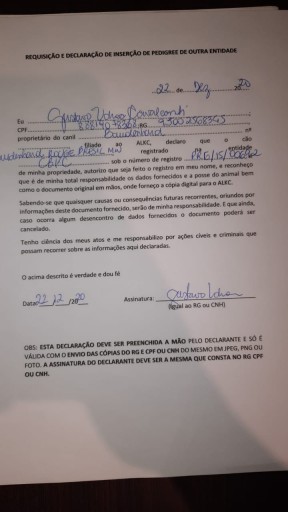 REQUISIÇÃO E DECLARAÇÃO DE INSERÇÃO DE PEDIGREE DE OUTRA ENTIDADE
22 de Dez 2020
Eu Gustavo Cavalcanti
CPF RG
proprietário do canil nº
filiado ao ALKC, declaro que o cão
registrado entidade
CBPC sob o número de registro
de minha propriedade, autorizo que seja feito o registro em meu nome, e reconheço
que é de minha total responsabilidade os dados fornecidos e a posse do animal bem
como o documento original em mãos, onde forneço a cópia digital para o ALKC.
Sabendo-se que quaisquer causas ou consequências futuras recorrentes, oriundos por
informações deste documento fornecido, serão de minha responsabilidade. E que ainda,
caso ocorra algum desencontro de dados fornecidos o documento poderá ser
cancelado.
Tenho ciência dos meus atos e me responsabilizo por ações cíveis e criminais que
possam recorrer sobre as informações aqui declaradas.
O acima descrito é verdade e dou fé
Data: 22/12/2020 Assinatura: Gustavo
(Igual ao RG ou CNH)
OBS: ESTA DECLARAÇÃO DEVE SER PREENCHIDA A MÃO PELO DECLARANTE E SÓ É
VÁLIDA COM O ENVIO DAS CÓPIAS DO RG E CPF OU CNH DO MESMO EM JPEG, PNG OU
FOTO. A ASSINATURA DO DECLARANTE DEVE SER A MESMA QUE CONSTA NO RG CPF
OU CNH.